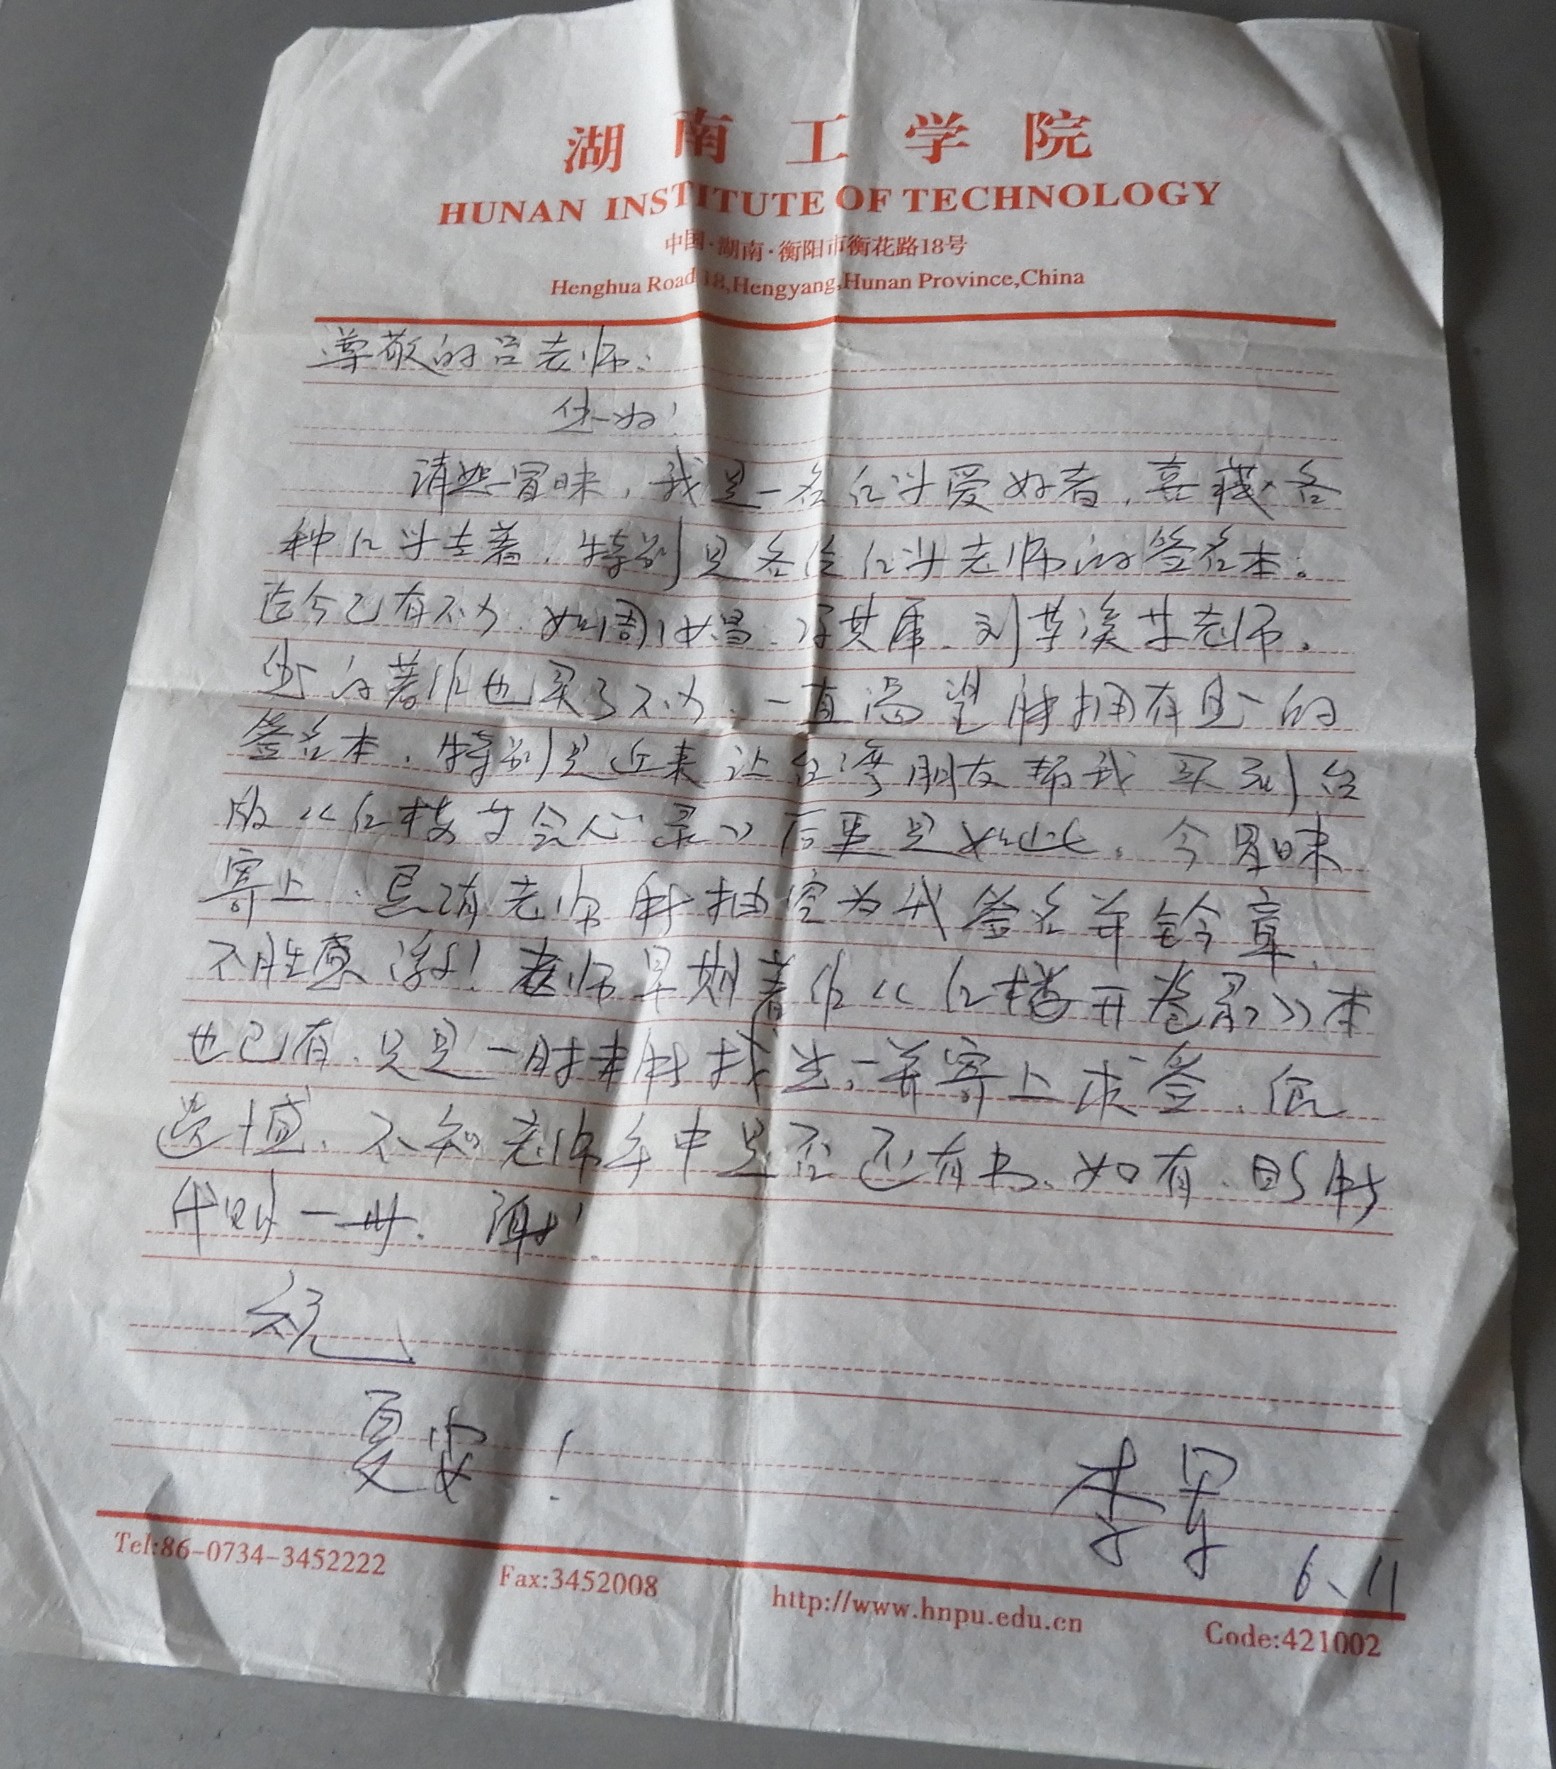 湖南工学院
HUNAN INSTITUTE OF TECHNOLOGY
中国·湖南·衡阳市衡花路18号
Henghua Road 18,Hengyang,Hunan Province,China
尊敬的吕老师:
您好!
请恕冒昧,我是一名红学爱好者,喜藏各
种红学专著,特别是各位红学老师的签名本。
迄今已有不少,如周汝昌、冯其庸、刘草溪等老师。
您的著作也买了不少,一直渴望能拥有您的
签名本,特别是近来让台湾朋友帮我买到台
版《红楼梦会心录》后更是如此。今冒昧
寄上,恳请老师能抽空为我签名并钤章,
不胜感谢!老师早期著作《红楼开卷录》本
也已有,只是一时未能找出,一并寄上求签,很
遗憾,不知老师手中是否还有书,如有,盼能
代购一册。谢谢!
祝
夏安!
李军
6、11
Tel:86-0734-3452222
Fax:3452008
http://www.hnpu.edu.cn
Code:421002